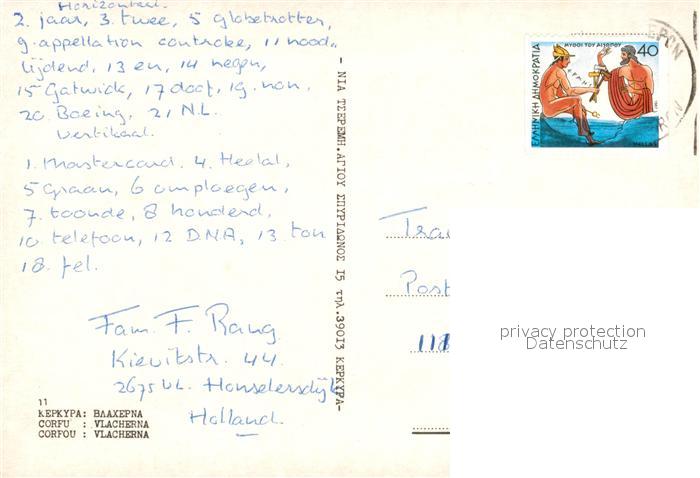 Horizontaal.
2. jaar, 3. twee, 5 globetrotter,
9. appellation controlee, 11 nood
lijdend, 13 en, 14 negen,
15 Gatwick, 17 doof, 19. non,
20 Boeing, 21 N.L.
Vertikaal.
1. Mastercard. 4. Heelal,
5 Graan, 6 omploegen,
7. toonde, 8 honderd,
10 telefoon, 12 D.N.A, 13 ton
18. fel.
Fam. F. Rang
Kievitstr. 44.
2675 VL. Honselersdijk
Holland.
11
ΚΕΡΚΥΡΑ: ΒΛΑΧΕΡΝΑ
CORFU : VLACHERNA
CORFOU : VLACHERNA
- ΝΙΑ ΤΣΕΡΕΜΗ.ΑΓΙΟΥ ΣΠΥΡΙΔΩΝΟΣ 15 τηλ.39013 ΚΕΡΚΥΡΑ-
ΜΥΘΟΙ ΤΟΥ ΑΙΣΩΠΟΥ
40
ΕΛΛΗΝΙΚΗ ΔΗΜΟΚΡΑΤΙΑ
HELLAS
Post
118
privacy protection
Datenschutz